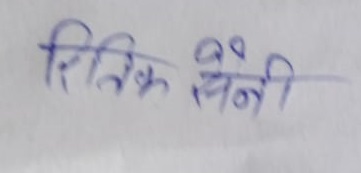 रितिक सैनी